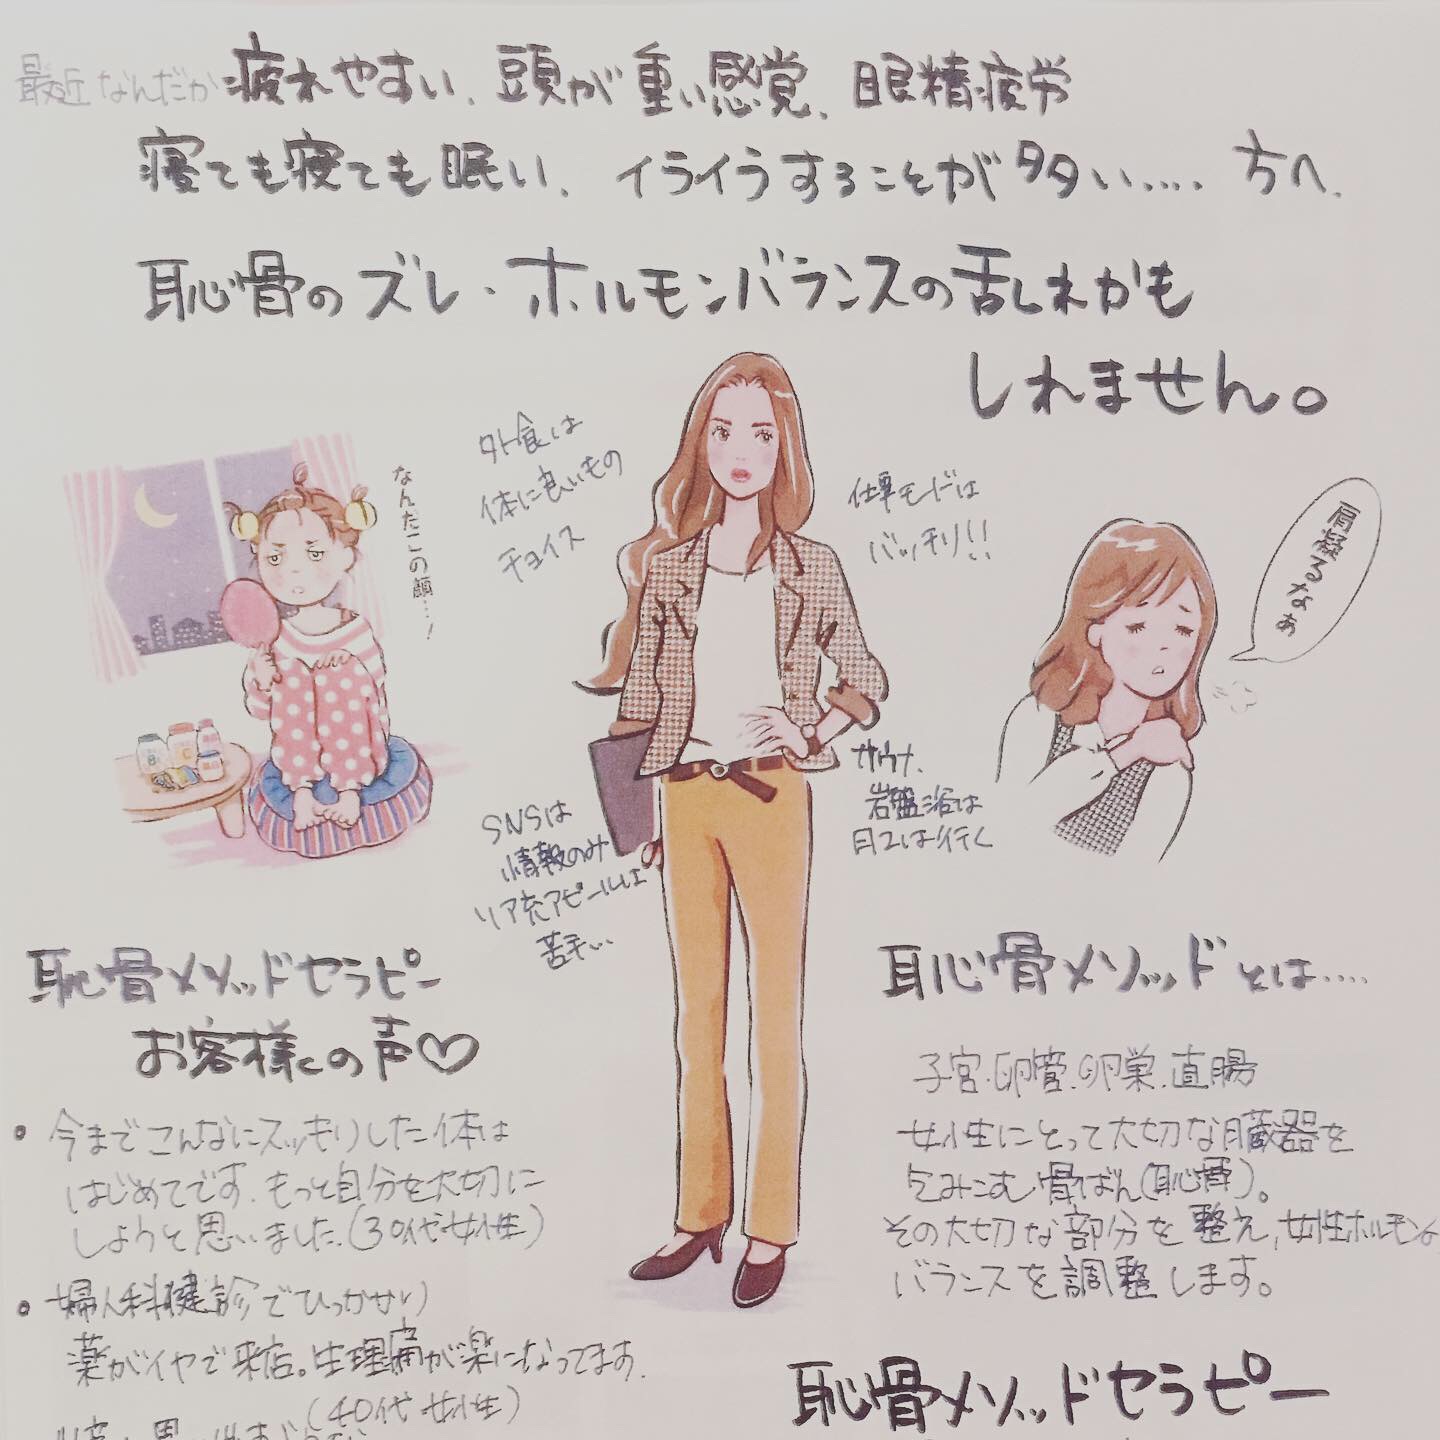 最近なんだか疲れやすい、頭が重い感覚、眼精疲労
寝ても寝ても眠い、イライラすることが多い.... 方へ、
恥骨のズレ・ホルモンバランスの乱れかも
しれません。
なんだこの顔…！
外食は
体に良いもの
チョイス
仕事モードは
バッチリ!!
肩凝るなぁ
サウナ、
岩盤浴は
月2は行く
SNSは
情報のみ
リア充アピールは
苦手...
恥骨メソッドセラピー
お客様の声♡
• 今までこんなにスッキリした体は
はじめてです。もっと自分を大切に
しようと思いました。(30代女性)
• 婦人科健診でひっかかり
薬がイヤで来店。生理痛が楽になってます。
(40代女性)
恥骨メソッドとは....
子宮.卵管.卵巣.直腸
女性にとって大切な臓器を
包みこむ骨ばん(恥骨)。
その大切な部分を整え,女性ホルモンの
バランスを調整します。
恥骨メソッドセラピー